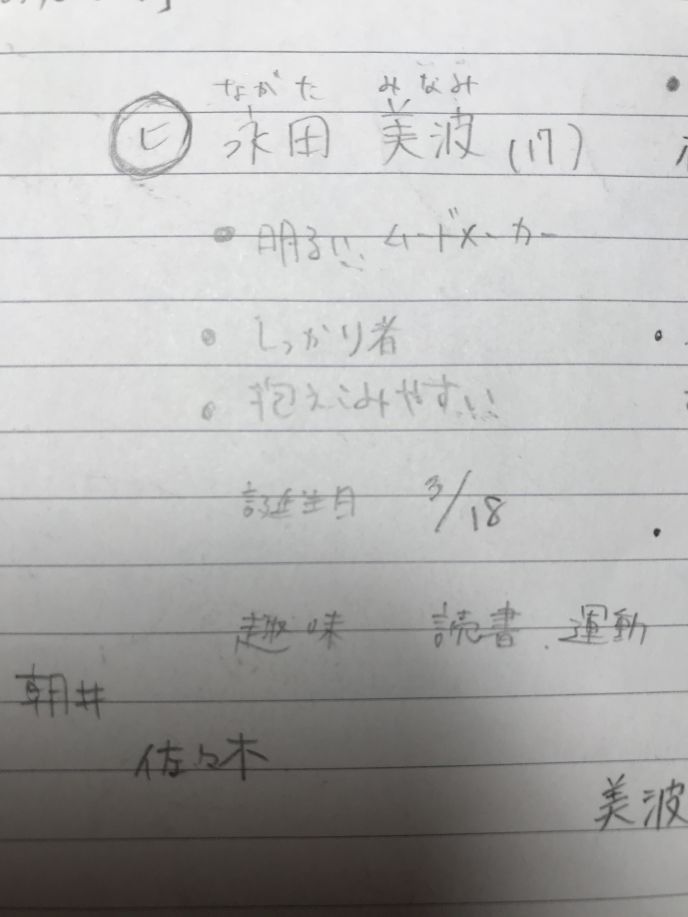 ながた みなみ
ヒ 永田 美波 (17)
・明るい ムードメーカー
・しっかり者
・抱えこみやすい
誕生日 3/18
趣味 読書、運動
朝井
佐々木
美波